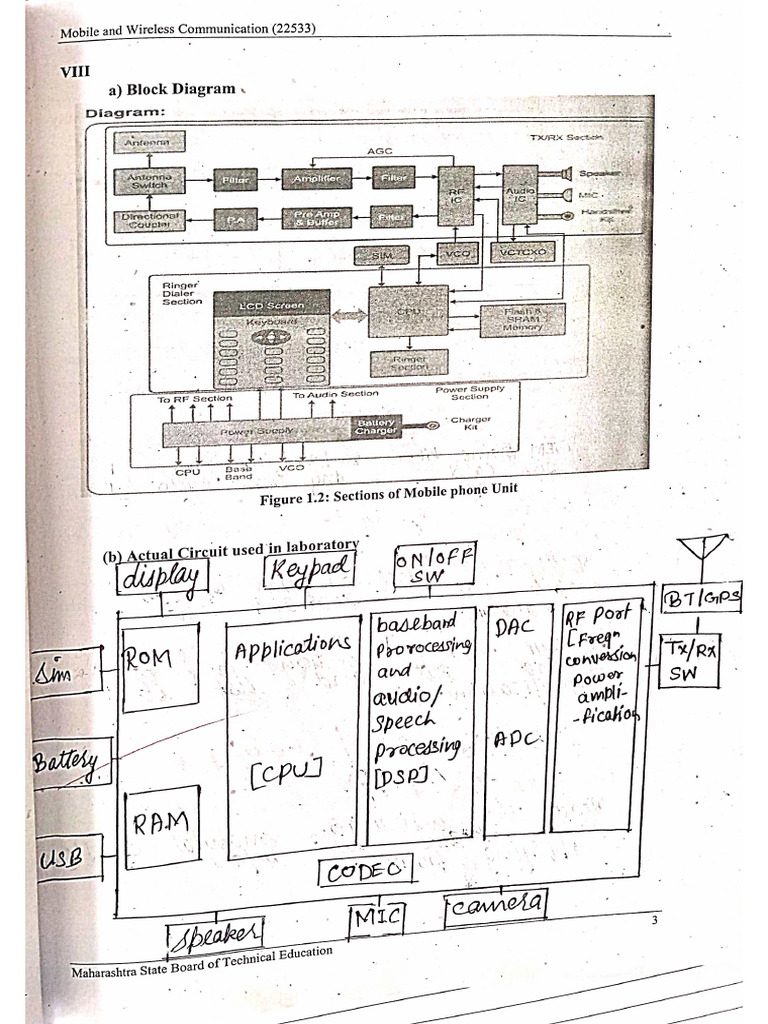 Mobile and Wireless Communication (22533)
VIII
a) Block Diagram
Diagram:
TX/RX Section
Antenna
AGC
Antenna Switch
Filter
Amplifier
Filter
RF IC
Audio IC
Speaker
MIC
Handsfree Kit
Directional Coupler
P.A
Pre Amp & Buffer
Filter
SIM
VCO
VCTCXO
Ringer Dialer Section
LCD Screen
Keyboard
CPU
Flash & SRAM Memory
Ringer Section
To RF Section
To Audio Section
Power Supply Section
Power Supply
Battery Charger
Charger Kit
CPU
Base Band
VCO
Figure 1.2: Sections of Mobile phone Unit
(b) Actual Circuit used in laboratory
display
Keypad
ON/OFF
SW
BT/GPS
Tx/Rx
SW
Sim
Battery
USB
ROM
RAM
Applications
[CPU]
baseband
porocessing
and
audio/
speech
processing
[DSP]
DAC
ADC
RF Port
[Freqn
conversion
power
ampli-
-fication
CODEC
speaker
MIC
camera
3
Maharashtra State Board of Technical Education